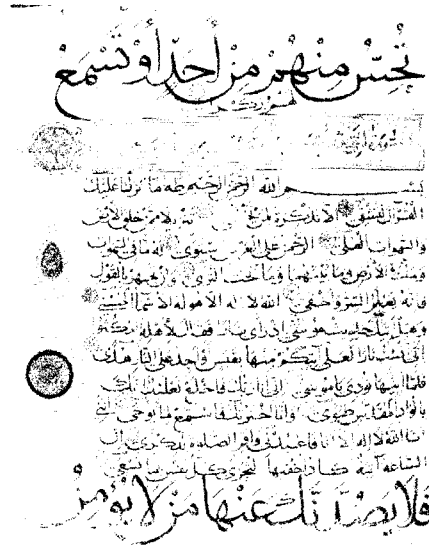 تُحِسُّ مِنْهُمْ مِنْ أَحَدٍ أَوْ تَسْمَعُ
لهم ركزا
بسم الله الرحمن الرحيم طه ما نزلنا عليك
القرآن لتشقى الا تذكرة لمن يخشى تنزيلا ممن خلق الارض
والسموات العلى الرحمن على العرش استوى له ما في السموات
وما في الارض وما بينهما وما تحت الثرى وان تجهر بالقول
فانه يعلم السر واخفى الله لا اله الا هو له الاسماء الحسنى
وهل اتيك حديث موسى اذ راى نارا فقال لاهله امكثوا
انى انست نارا لعلى اتيكم منها بقبس او اجد على النار هدى
فلما اتيها نودى ياموسى انى انا ربك فاخلع نعليك انك
بالواد المقدس طوى وانا اخترتك فاستمع لما يوحى اننى
انا الله لا اله الا انا فاعبدنى واقم الصلاة لذكرى ان
الساعة آتية اكاد اخفيها لتجزى كل نفس بما تسعى
فَلَا يَصُدَّنَّكَ عَنْهَا مَنْ لَا يُؤْمِنُ